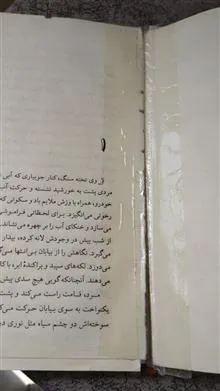 ۱
روی تخته سنگ، کنار جویباری که آبی
مردی پشت به خورشید نشسته و حرکت آب
خودرو، همراه با وزش ملایم باد و سکوتی که
رخوتی می‌انگیزد. برای لحظاتی فراموشی
می‌سازد و خنکای آب را بر چهره می‌نشاند.
از شب پیش در وجودش لانه کرده، بیدار
می‌گیرد. نگاهش را از بیابان بی‌انتها
می‌دوزد. لکه‌های سپید و پراکندهٔ ابر با
می‌دهند. آنچنانکه گویی هیچ سدی پیش
مرد، قامت راست می‌کند و پشت
یکنواخت به سوی بیابان حرکت می‌کند
سوخته‌اش دو چشم سیاه مثل نوری